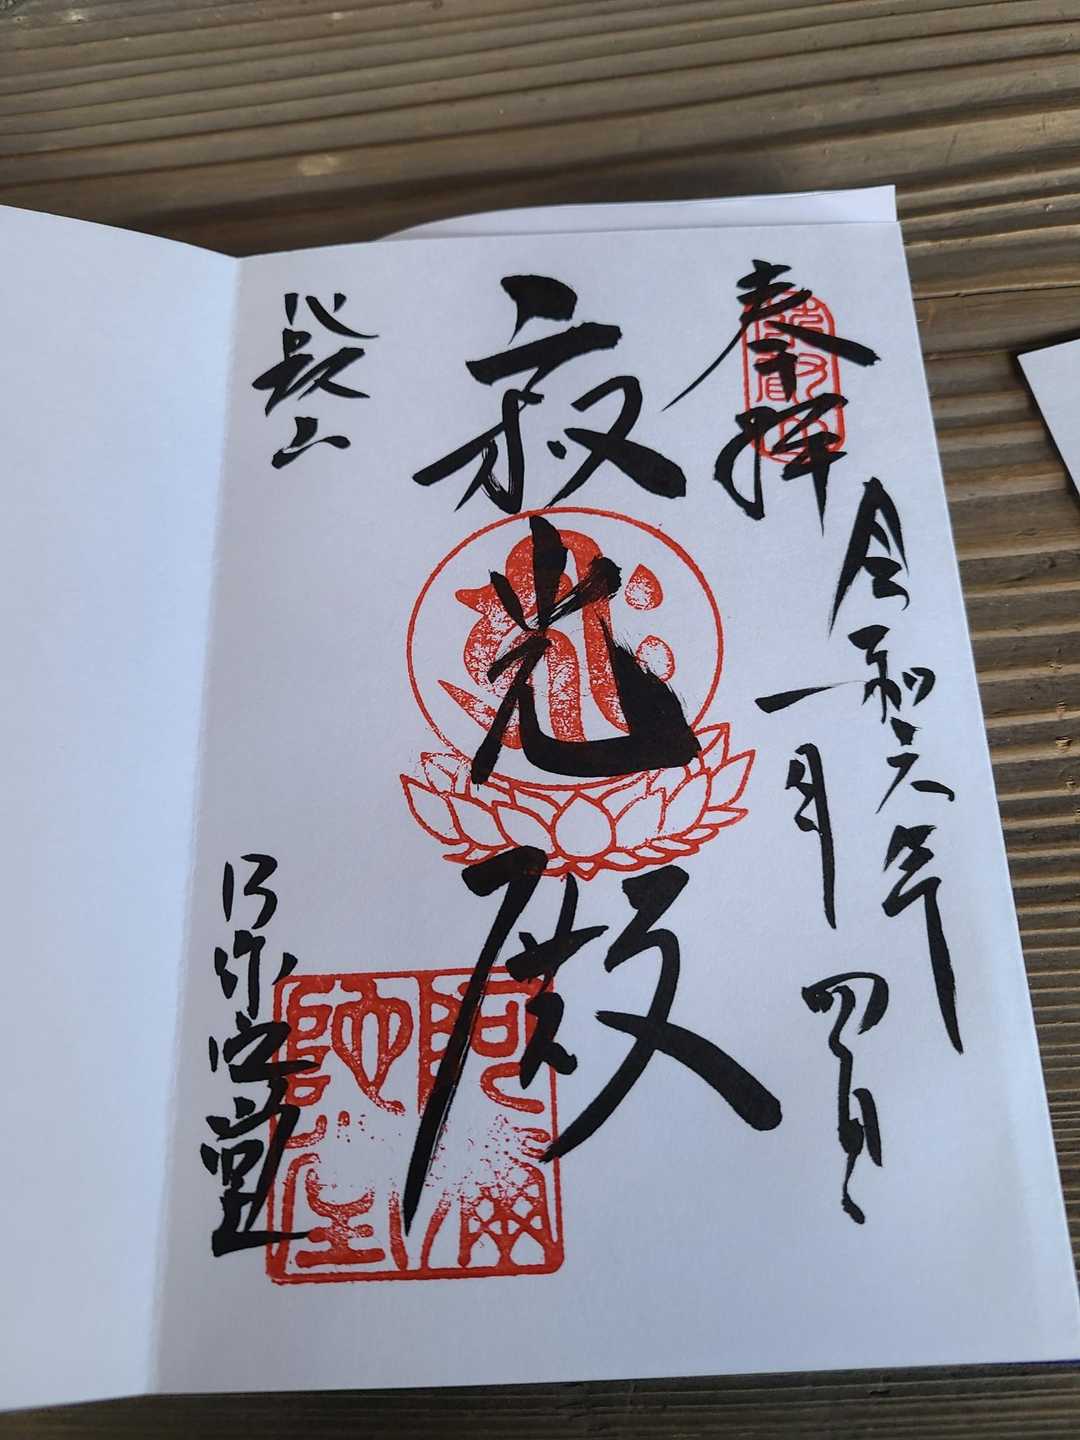 奉拝
令和六年
一月四日
寂光殿
比叡山
阿弥陀堂